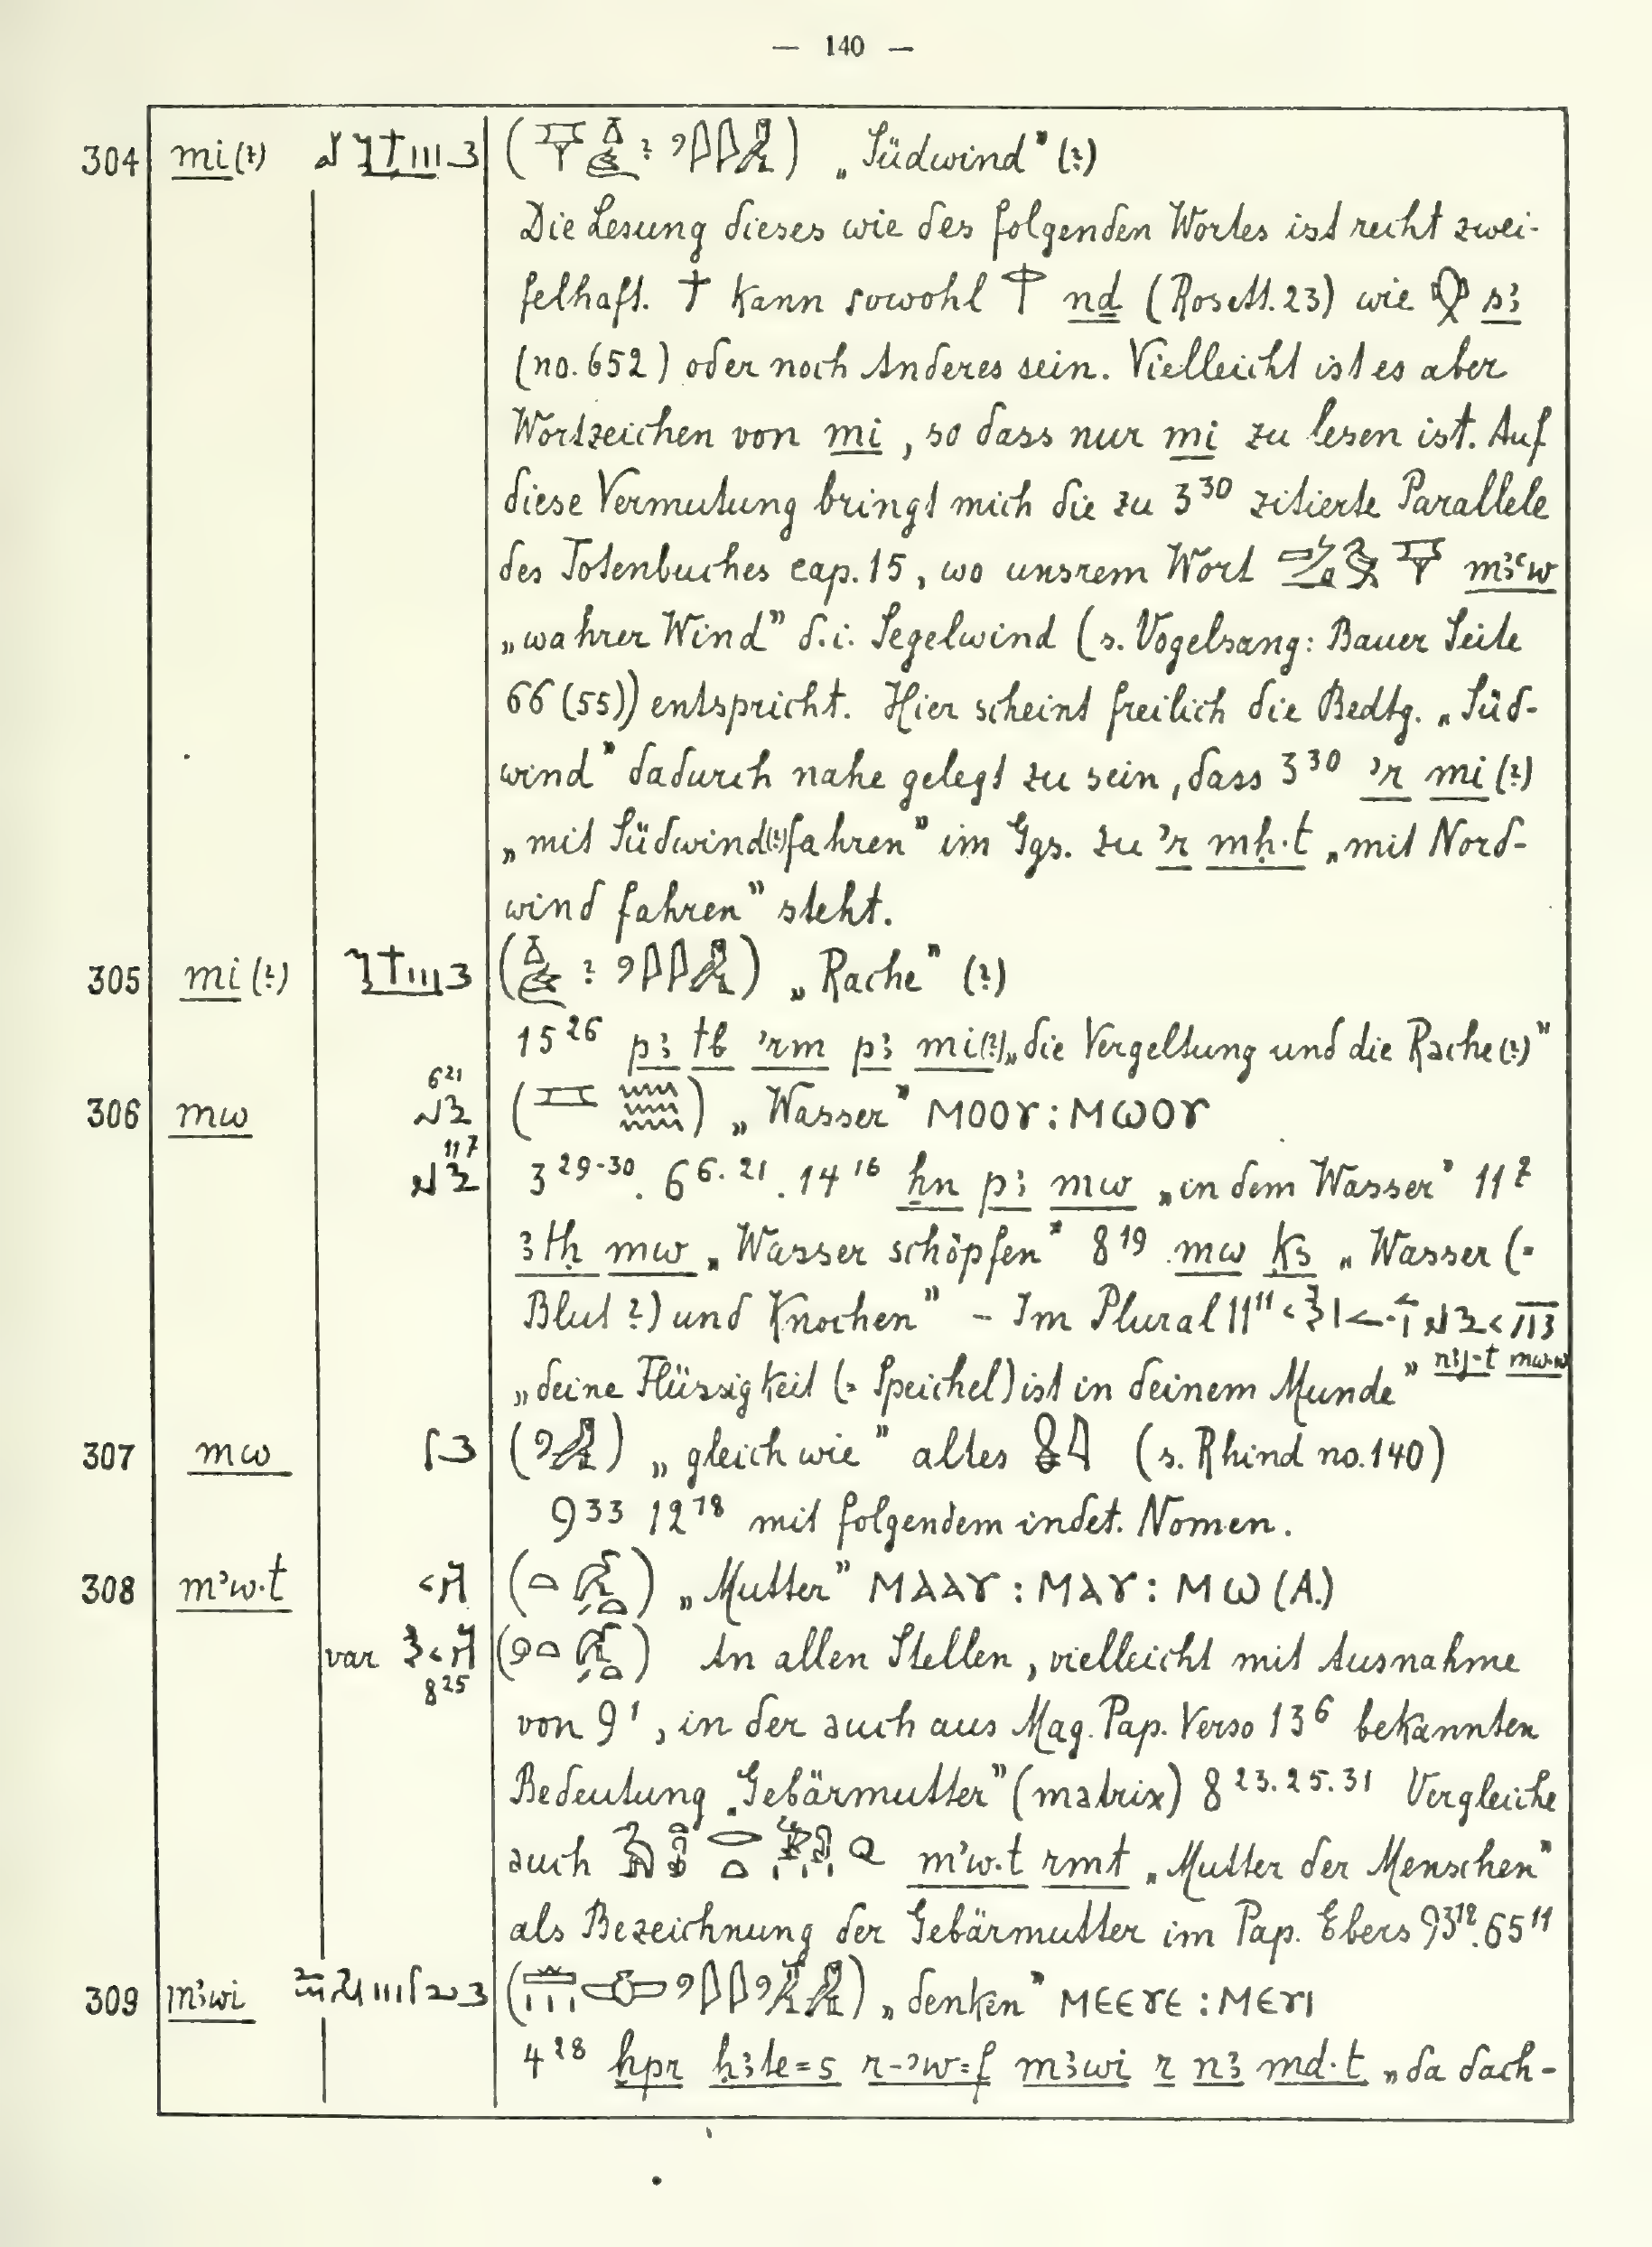 — 140 —
304 mi (?) „Südwind” (?)
Die Lesung dieses wie des folgenden Wortes ist recht zwei-
felhaft. kann sowohl nḏ (Rosett. 23) wie s3
(no. 652) oder noch Anderes sein. Vielleicht ist es aber
Wortzeichen von mi, so dass nur mi zu lesen ist. Auf
diese Vermutung bringt mich die zu 3³⁰ zitierte Parallele
des Totenbuches cap. 15, wo unsrem Wort m3ꜥw
„wahrer Wind” d.i. Segelwind (s. Vogelsang: Bauer Seite
66 (55)) entspricht. Hier scheint freilich die Bedtg. „Süd-
wind” dadurch nahe gelegt zu sein, dass 3³⁰ ʾr mi (?)
„mit Südwind(?) fahren” im Ggs. zu ʾr mḥ·t „mit Nord-
wind fahren” steht.
305 mi (?) „Rache” (?)
15²⁶ p3 tb ʾrm p3 mi(?) „die Vergeltung und die Rache (?)”
306 mw 6²¹ „Wasser” ⲙⲟⲟⲩ : ⲙⲱⲟⲩ
11⁷ 3²⁹⁻³⁰. 6⁶·²¹. 14¹⁶ ẖn p3 mw „in dem Wasser” 11⁷
3tḥ mw „Wasser schöpfen” 8¹⁹ mw ḳs „Wasser (=
Blut ?) und Knochen” – Im Plural 11¹¹
„deine Flüssigkeit (= Speichel) ist in deinem Munde” n3j·t mw·w
307 mw „gleich wie” altes (s. Rhind no. 140)
9³³ 12¹⁸ mit folgendem indet. Nomen.
308 mʾw·t „Mutter” ⲙⲁⲁⲩ : ⲙⲁⲩ : ⲙⲱ (A.)
var 8²⁵ An allen Stellen, vielleicht mit Ausnahme
von 9¹, in der auch aus Mag. Pap. Verso 13⁶ bekannten
Bedeutung „Gebärmutter” (matrix) 8²³·²⁵·³¹ Vergleiche
auch mʾw·t rmt „Mutter der Menschen”
als Bezeichnung der Gebärmutter im Pap. Ebers 93¹². 65¹¹
309 m3wi „denken” ⲙⲉⲉⲩⲉ : ⲙⲉⲩⲓ
4²⁸ ḫpr ḥ3te=s r-ʾw=f m3wi r n3 md·t „da dach-